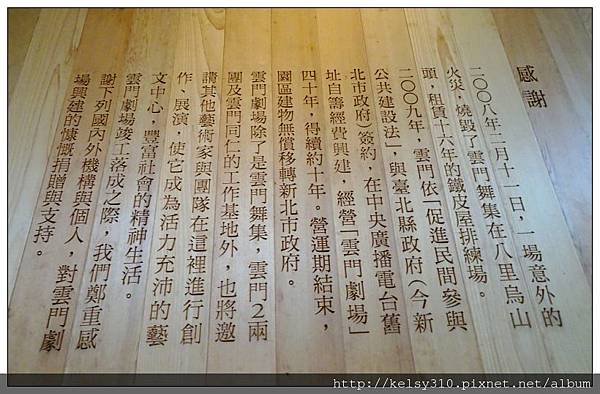 感謝
二〇〇八年二月十一日，一場意外的
火災，燒毀了雲門舞集在八里烏山
頭，租賃十六年的鐵皮屋排練場。
二〇〇九年，雲門依「促進民間參與
公共建設法」，與臺北縣政府（今新
北市政府）簽約，在中央廣播電台舊
址自籌經費興建、經營「雲門劇場」
四十年，得續約十年。營運期結束，
園區建物無償移轉新北市政府。
雲門劇場除了是雲門舞集，雲門2兩
團及雲門同仁的工作基地外，也將邀
請其他藝術家與團隊在這裡進行創
作、展演，使它成為活力充沛的藝
文中心，豐富社會的精神生活。
雲門劇場竣工落成之際，我們鄭重感
謝下列國內外機構與個人，對雲門劇
場興建的慷慨捐贈與支持。
http://kelsy310.pixnet.net/album